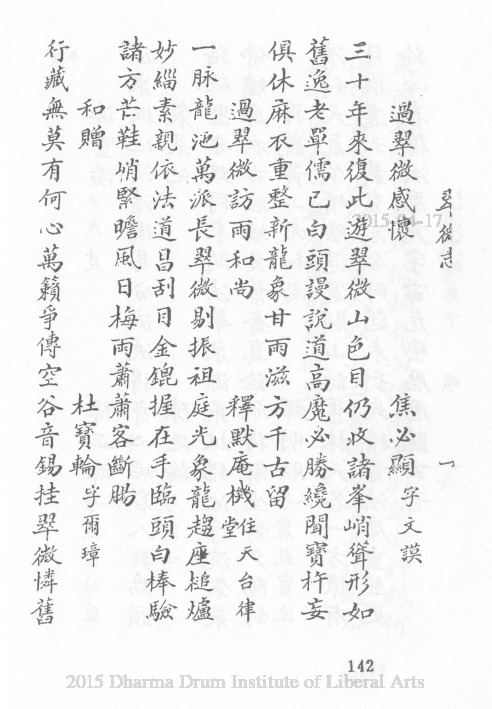 翠微志 一
過翠微感懷 焦必顯字文謨
三十年來復此遊翠微山色目仍收諸峯峭聳形如
舊逸老單儒已白頭謾說道高魔必勝纔聞寶杵妄
俱休麻衣重整新龍象甘雨滋方千古留
過翠微訪雨和尚 釋默庵機住天台律堂
一脉龍池萬派長翠微剔振祖庭光象龍趨座槌爐
妙緇素親依法道昌刮目金鎞握在手臨頭白棒驗
諸方芒鞋峭緊瞻風日梅雨蕭蕭客斷腸
和贈 杜寶輪字爾璋
行藏無莫有何心萬籟爭傳空谷音錫挂翠微憐舊
142
2015-04-17
2015 Dharma Drum Institute of Liberal Arts